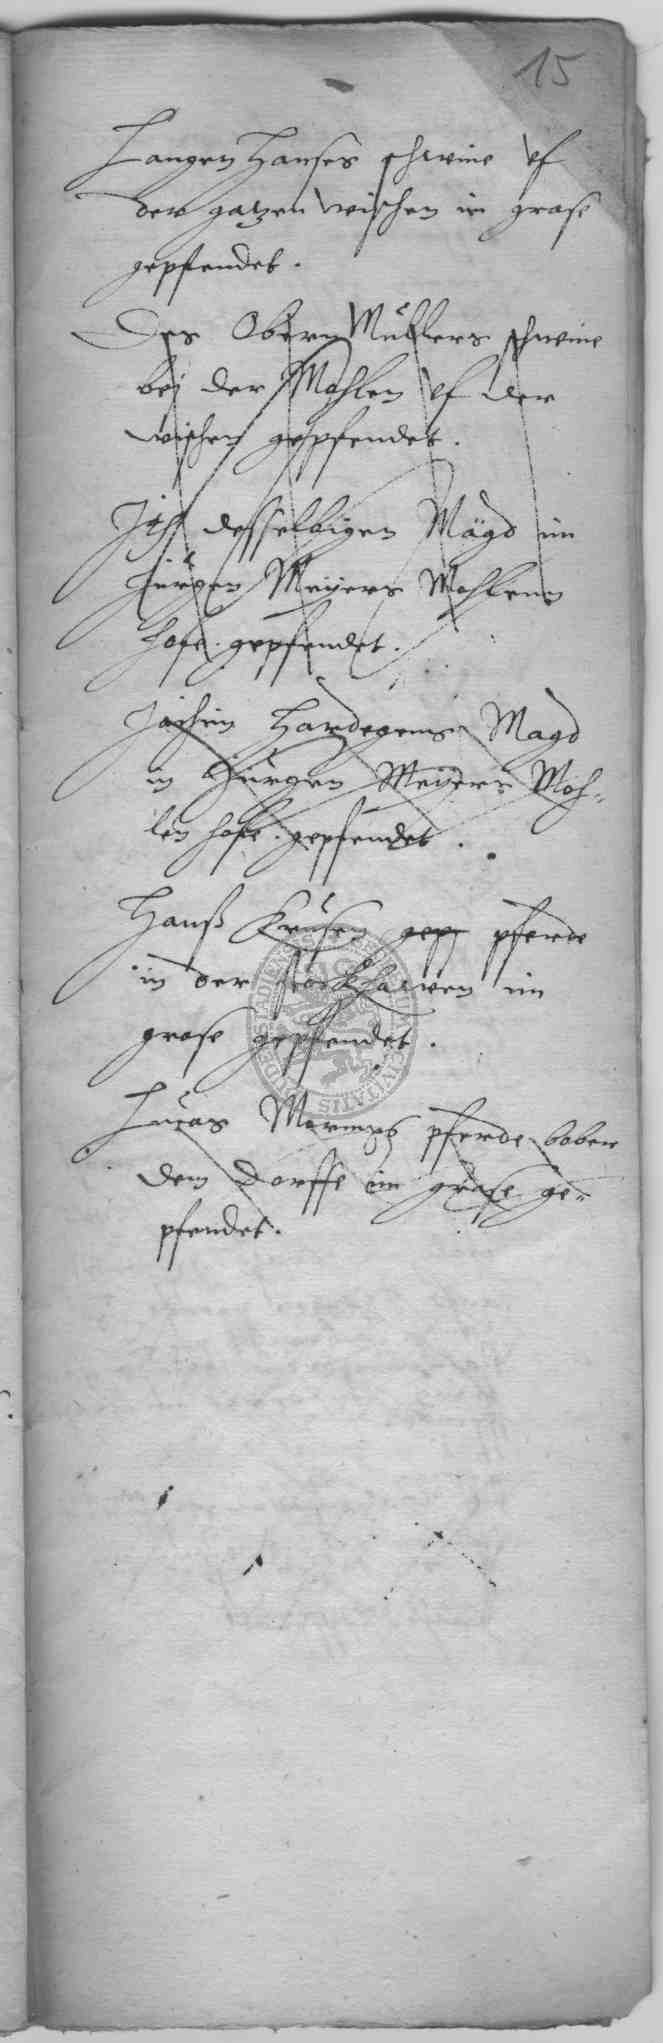 15
Langen Hanses schweine vf
der gatzen wischen im grase
gepfendet.
Des Obern Müllers schweine
bei der Mohlen vf der
wischen gepfendet.
Ith desselbigen Magd im
Jürgen Meyers Mohlenn
hofe gepfendet.
Jochim Hardegens Magd
in Jürgen Meyers Moh-
len hofe gepfendet.
Hanß Krusen gepf pferde
in der im
grase gepfendet.
Lucas pferde boben
dem Dorffe im grase ge-
pfendet.
CIVITATIS